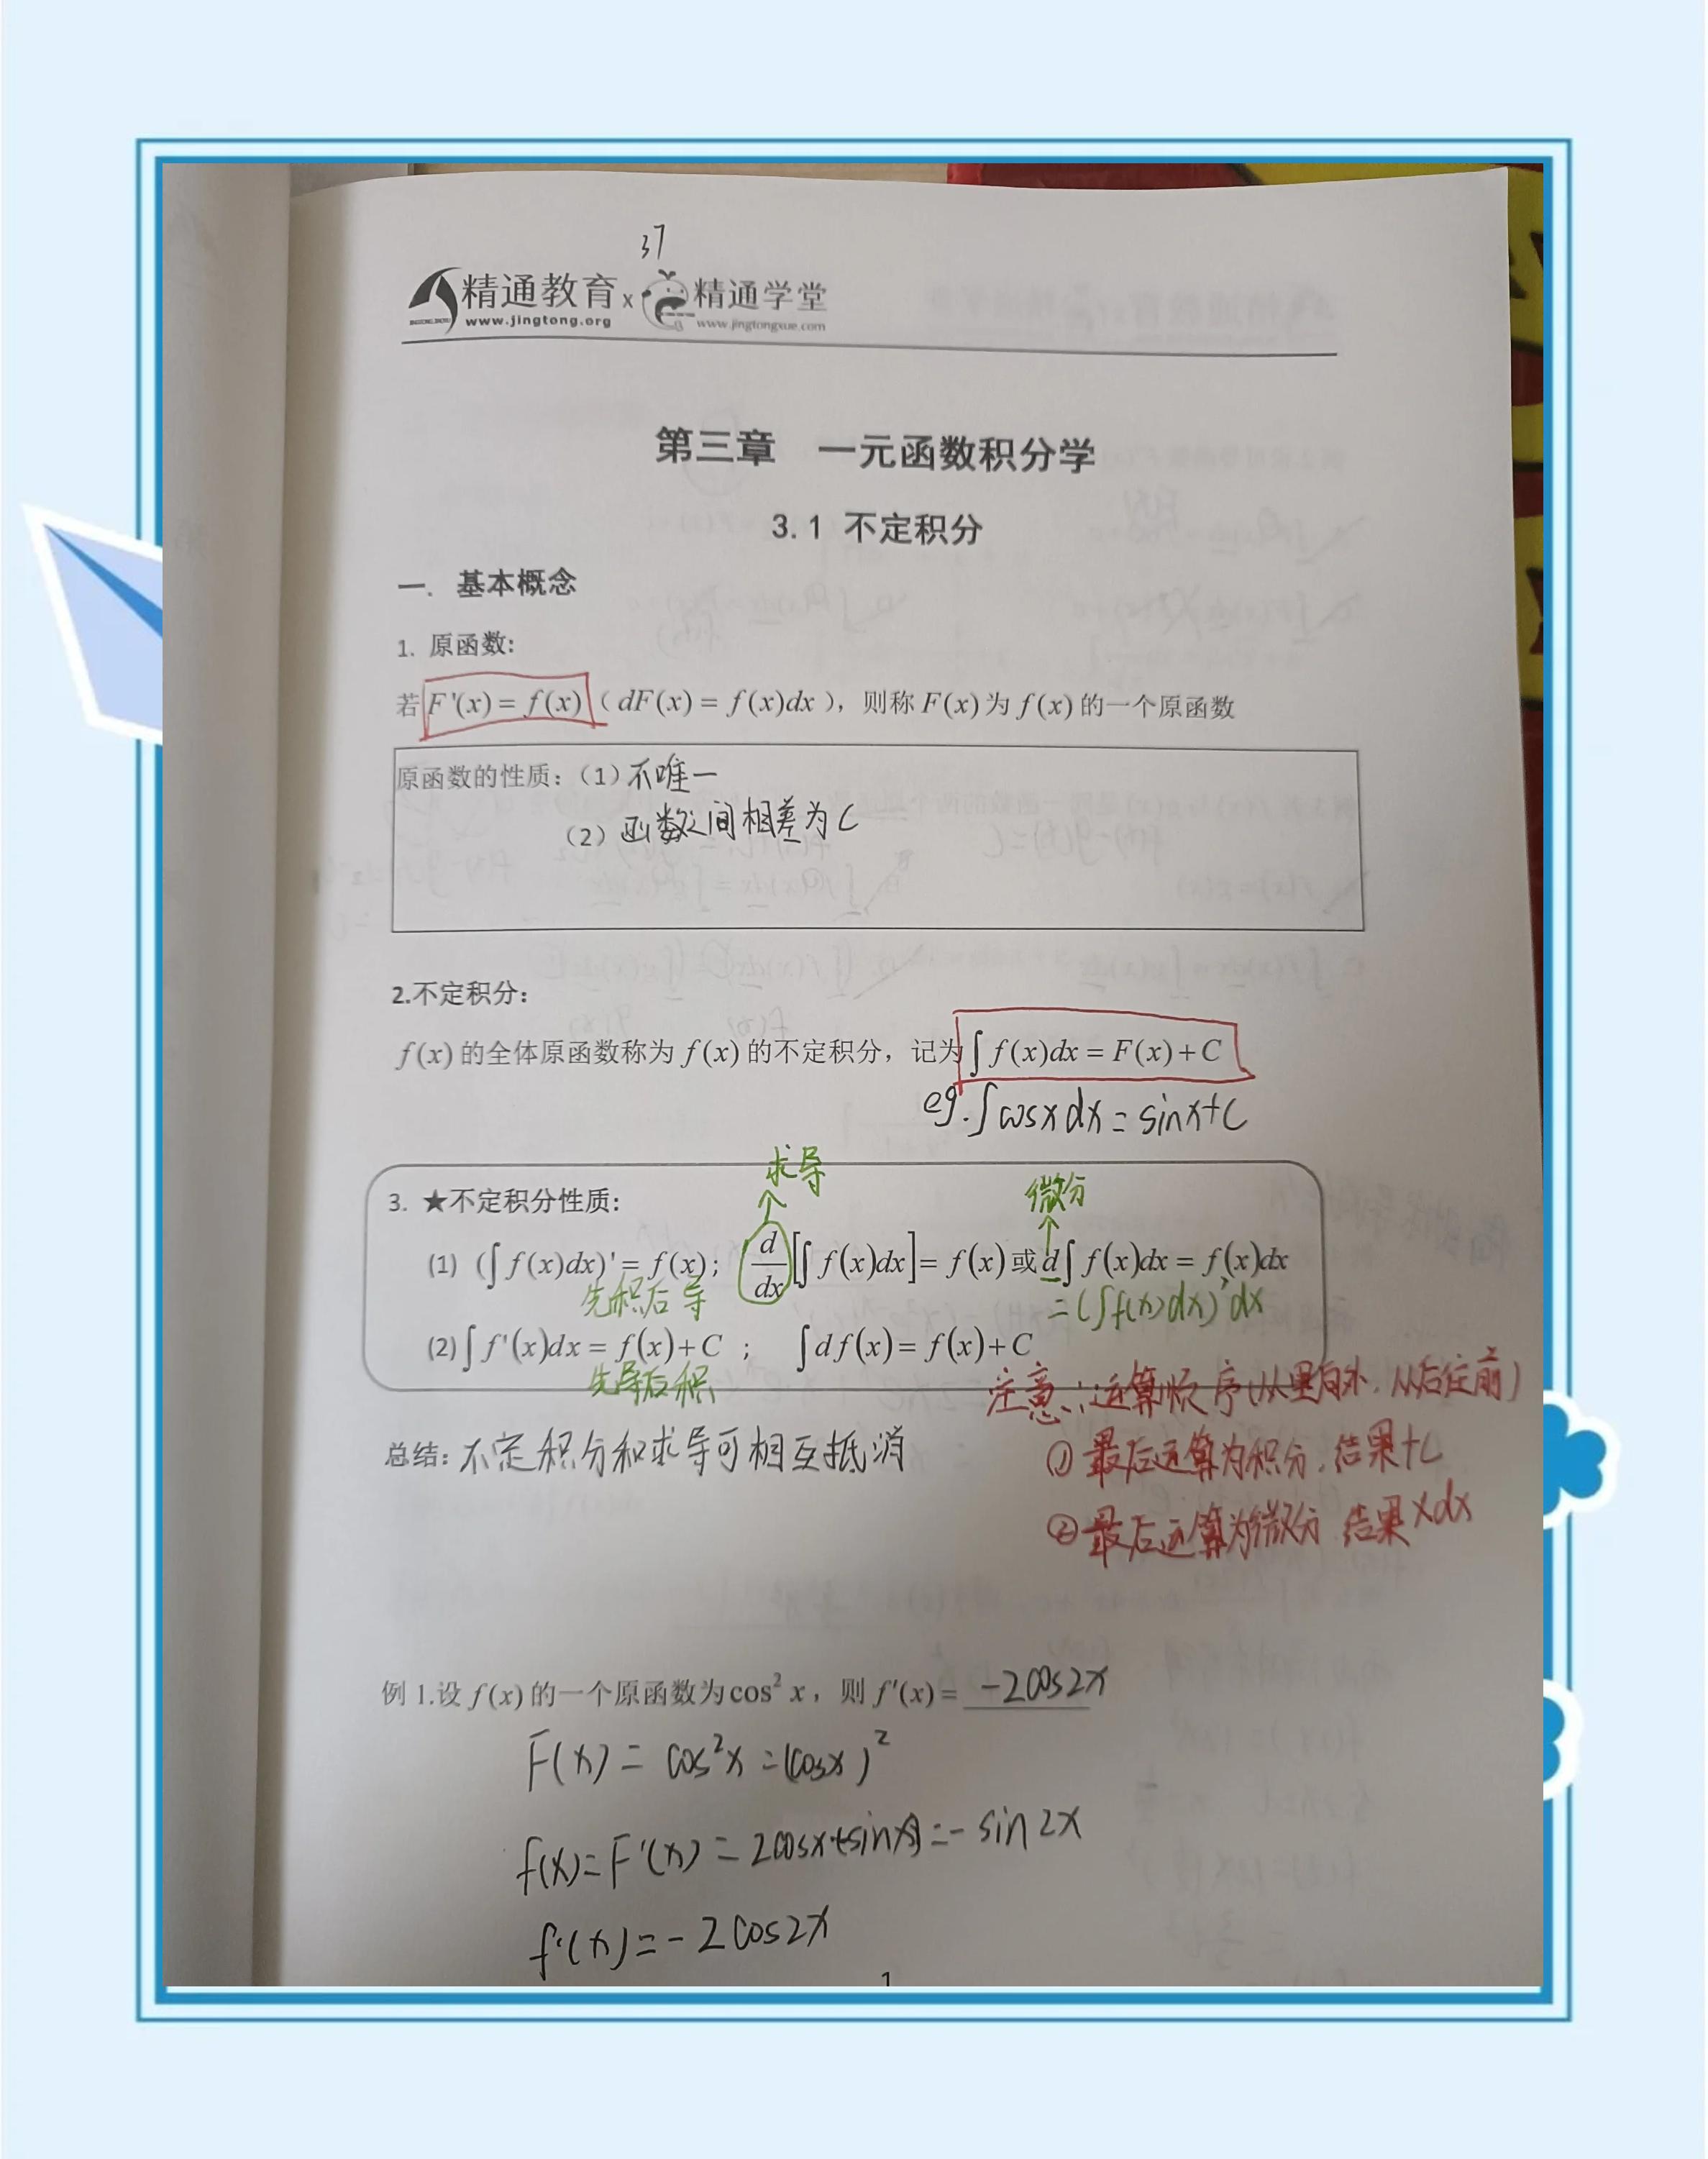 37
精通教育 x 精通学堂
www.jingtong.org www.jingtongxue.com
第三章 一元函数积分学
3.1 不定积分
一. 基本概念
1. 原函数:
若 F'(x) = f(x) ( dF(x) = f(x)dx ), 则称 F(x) 为 f(x) 的一个原函数
原函数的性质: (1) 不唯一
(2) 函数之间相差为C
2.不定积分:
f(x) 的全体原函数称为 f(x) 的不定积分, 记为 ∫ f(x)dx = F(x) + C
eg. ∫cosxdx = sinx+C
求导
微分
3. ★不定积分性质:
(1) (∫ f(x)dx)' = f(x); d/dx [∫ f(x)dx] = f(x) 或 d∫ f(x)dx = f(x)dx
先积后导 =(∫f(x)dx)'dx
(2) ∫ f'(x)dx = f(x)+C ; ∫ d f(x) = f(x)+C
先导后积
注意:运算顺序(从里向外,从后往前)
总结: 不定积分和求导可相互抵消
① 最后运算为积分,结果+C
② 最后运算为微分,结果×dx
例 1.设 f(x) 的一个原函数为 cos² x, 则 f'(x) = -2cos2x
F(x) = cos²x = (cosx)²
f(x) = F'(x) = 2cosx(-sinx) = -sin2x
f'(x) = -2cos2x
1